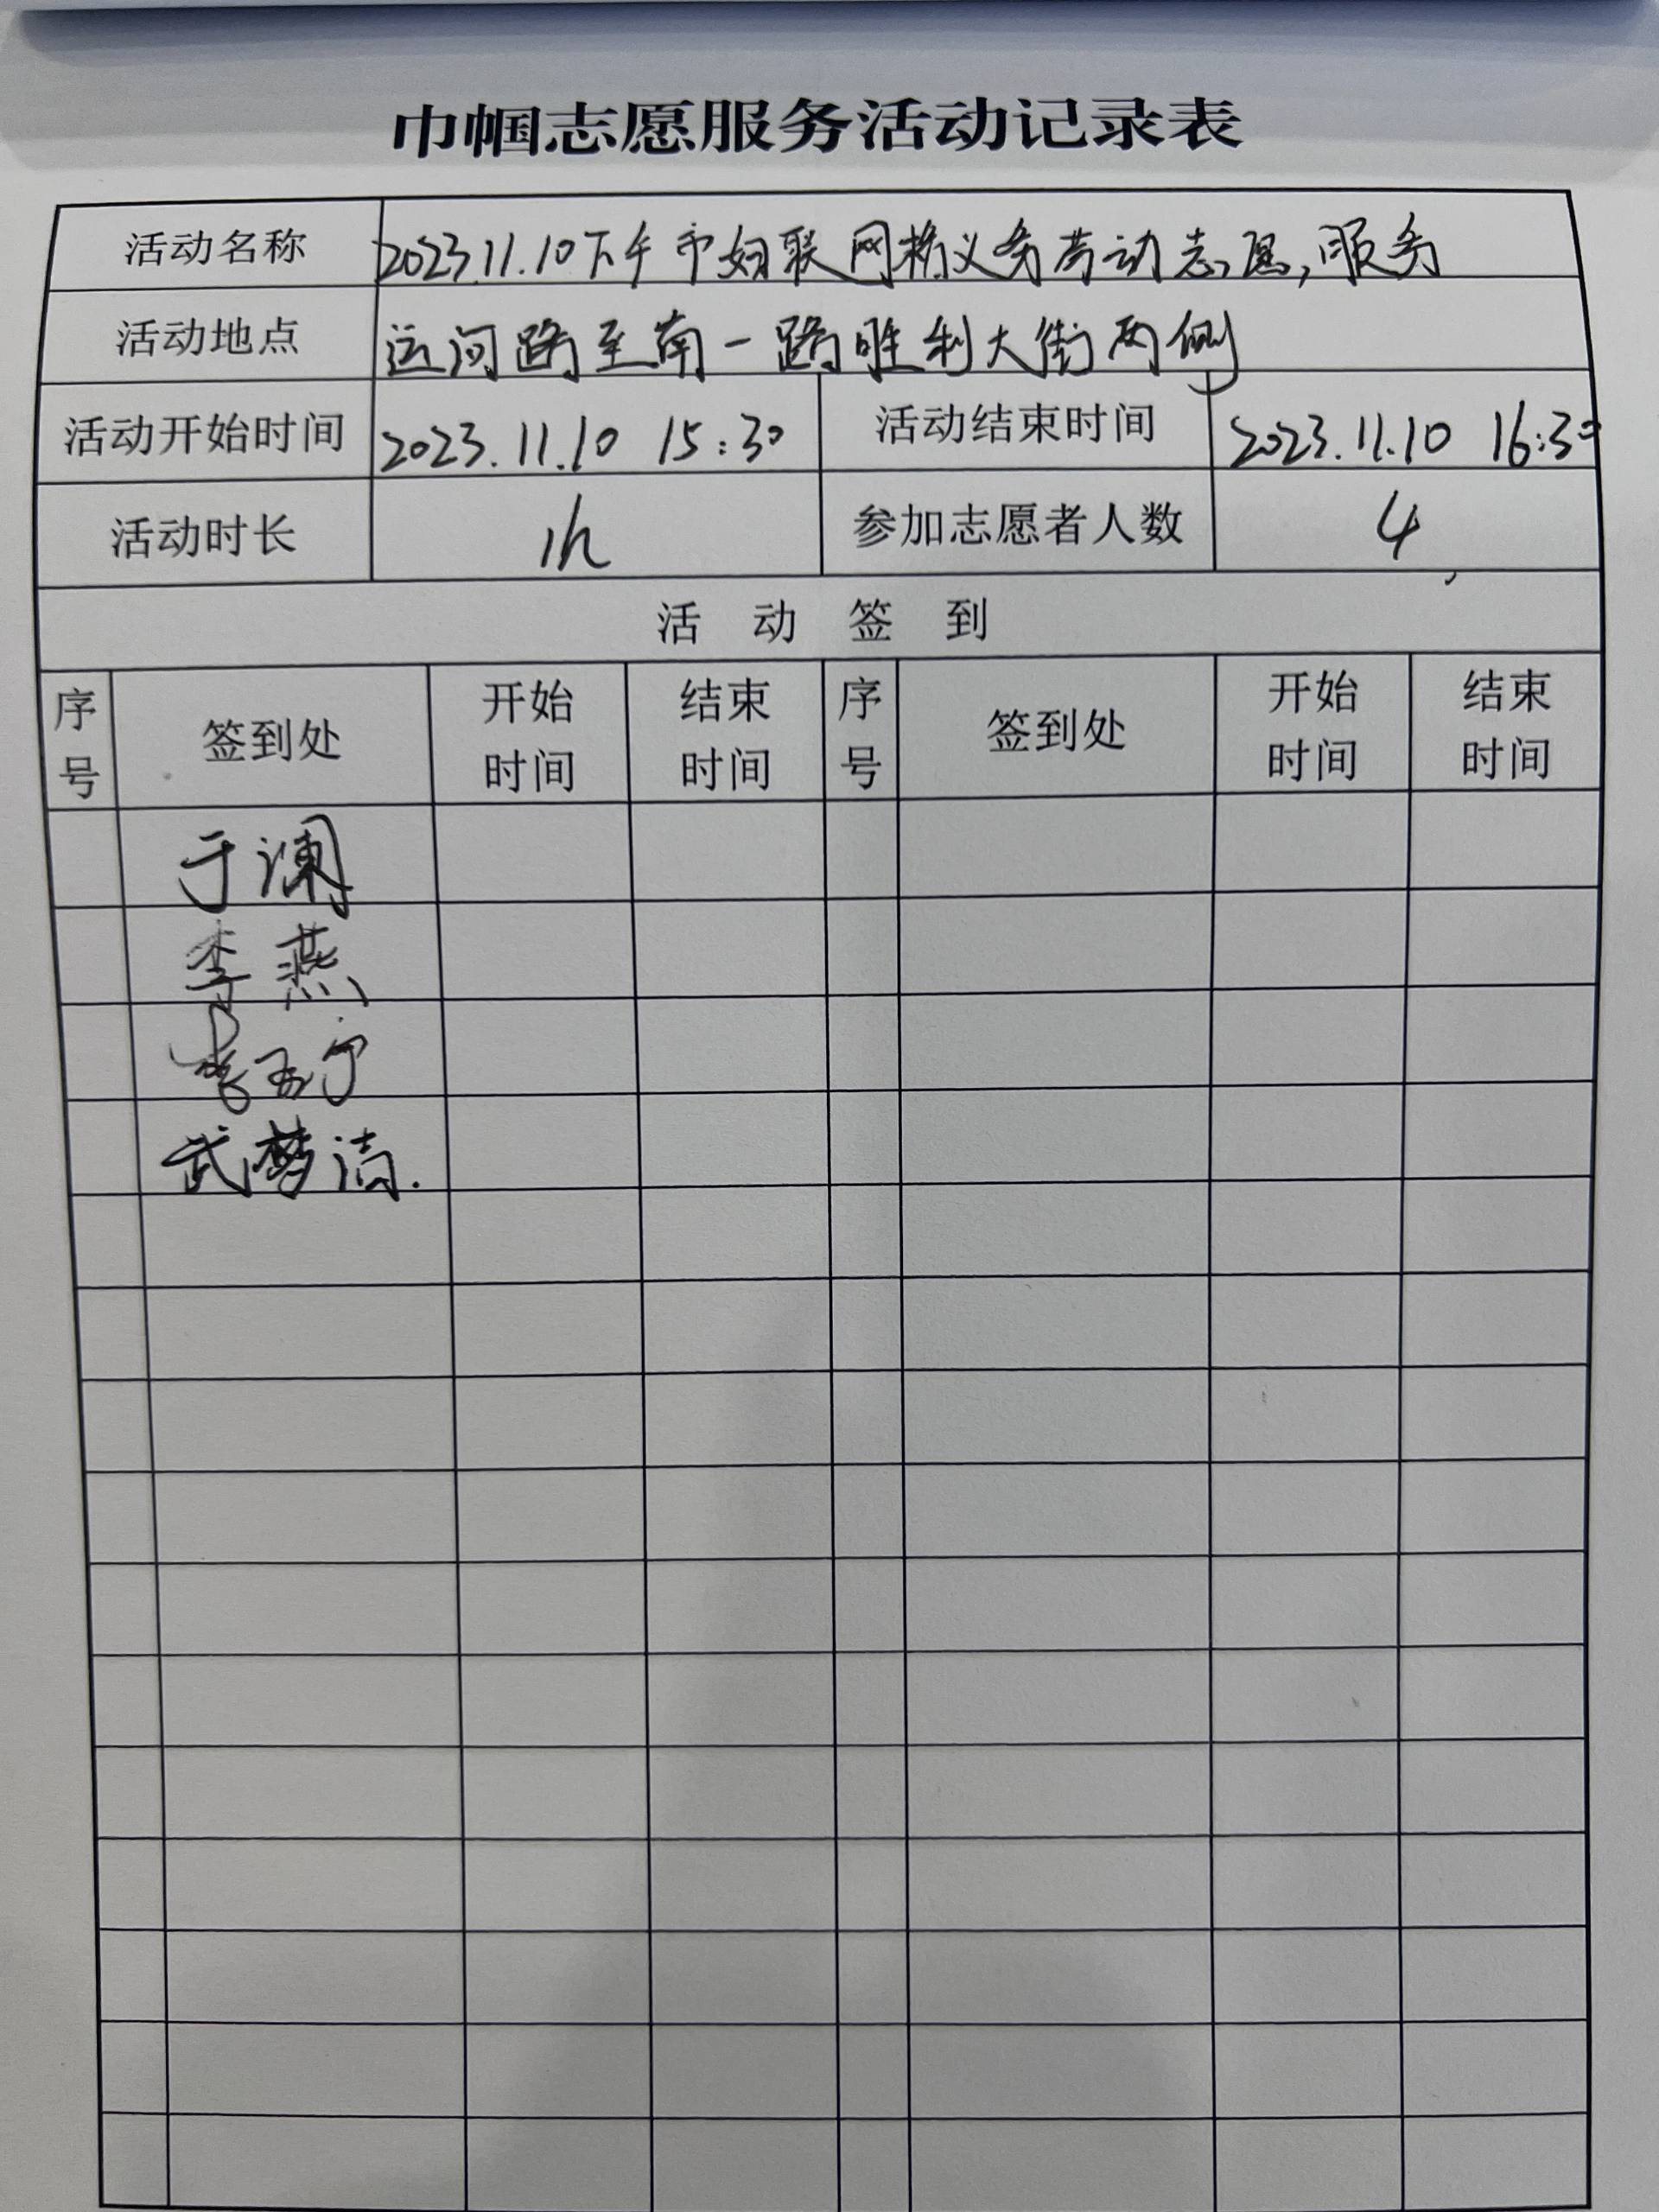 巾帼志愿服务活动记录表
活动名称 2023.11.10下午市妇联网格义务劳动志愿服务
活动地点 运河路至南一路胜利大街两侧
活动开始时间 2023.11.10 15:30 活动结束时间 2023.11.10 16:30
活动时长 1h 参加志愿者人数 4
活动签到
序号 签到处 开始时间 结束时间 序号 签到处 开始时间 结束时间
于澜
李燕
李
武梦洁.